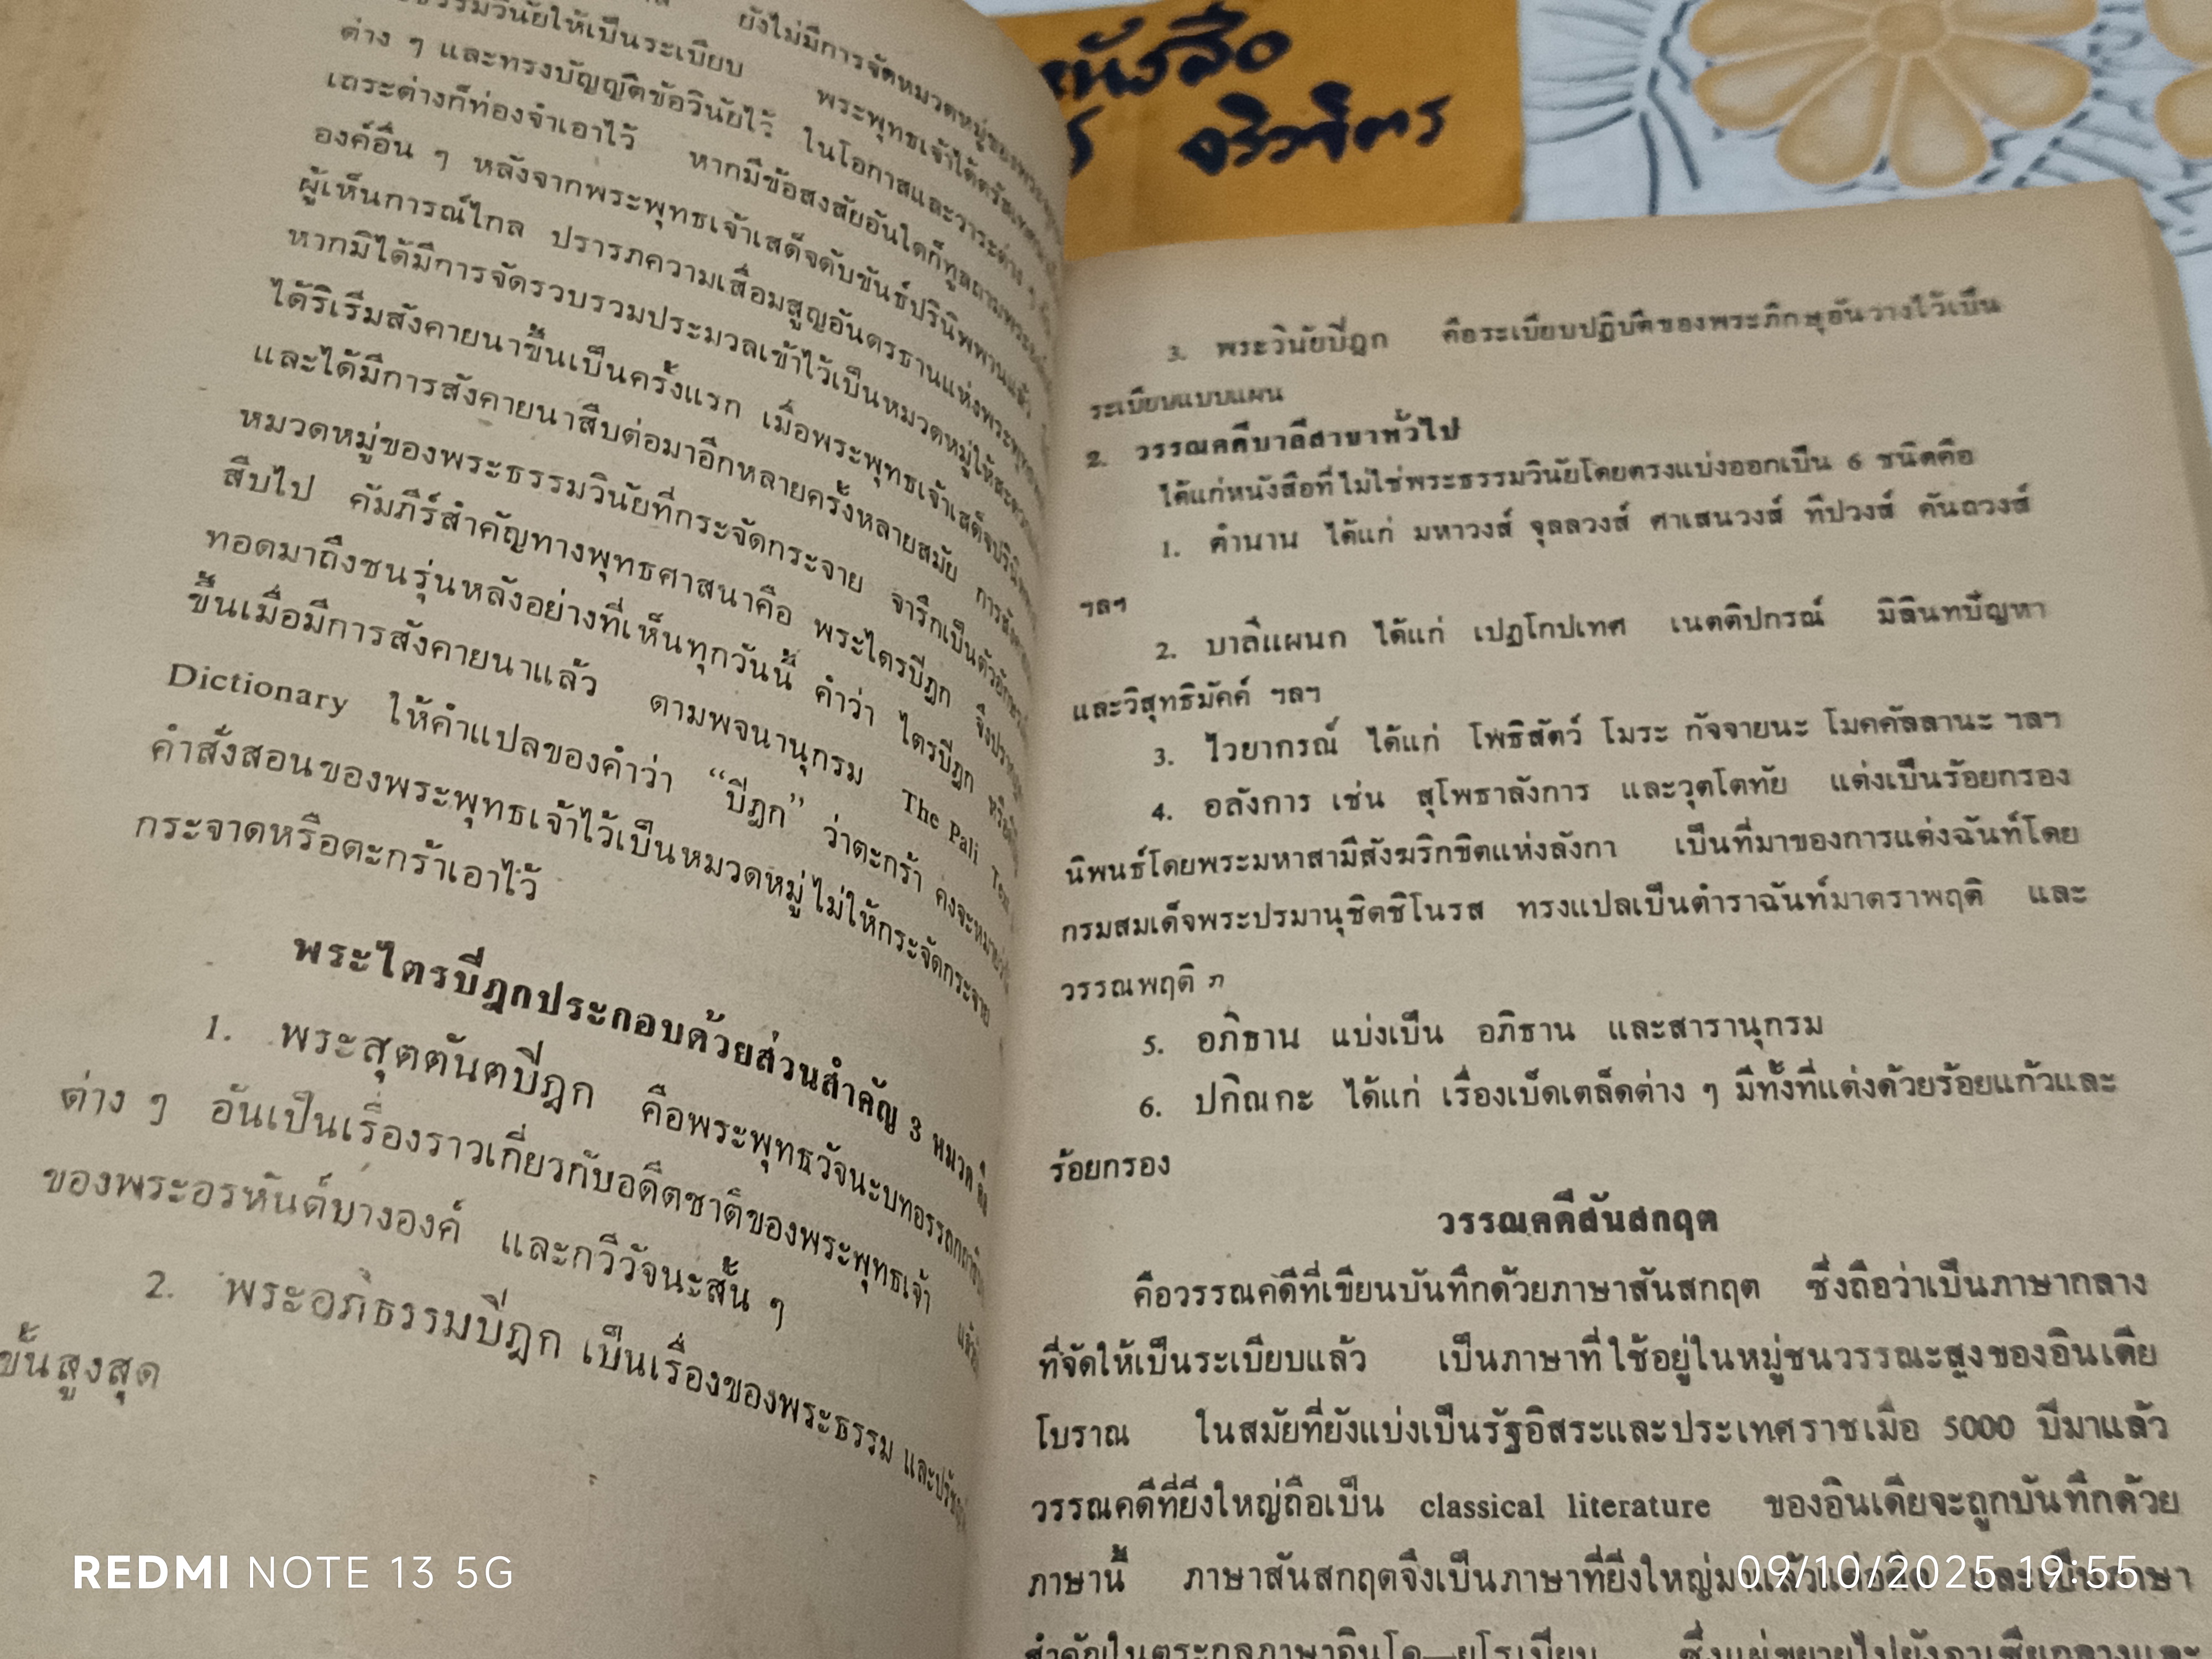 ยังไม่มีการจัดหมวดหมู่ของพระธรรม
ธรรมวินัยให้เป็นระเบียบ พระพุทธเจ้าได้ตรัสเทศนา
ต่าง ๆ และทรงบัญญัติข้อวินัยไว้ ในโอกาสและวาระต่าง ๆ
เถระต่างก็ท่องจำเอาไว้ หากมีข้อสงสัยอันใดก็ทูลถามพระองค์
องค์อื่น ๆ หลังจากพระพุทธเจ้าเสด็จดับขันธ์ปรินิพพานแล้ว
ผู้เห็นการณ์ไกล ปรารภความเสื่อมสูญอันตรธานแห่งพระพุทธ
หากมิได้มีการจัดรวบรวมประมวลเข้าไว้เป็นหมวดหมู่ให้สะดวก
ได้ริเริ่มสังคายนาขึ้นเป็นครั้งแรก เมื่อพระพุทธเจ้าเสด็จปรินิพพาน
และได้มีการสังคายนาสืบต่อมาอีกหลายครั้งหลายสมัย การสังคายนา
หมวดหมู่ของพระธรรมวินัยที่กระจัดกระจาย จารึกเป็นตัวอักษร
สืบไป คัมภีร์สำคัญทางพุทธศาสนาคือ พระไตรปิฎก จึงปรากฏ
ทอดมาถึงชนรุ่นหลังอย่างที่เห็นทุกวันนี้ คำว่า ไตรปิฎก
ขึ้นเมื่อมีการสังคายนาแล้ว ตามพจนานุกรม The Pali Text
Dictionary ให้คำแปลของคำว่า “ปิฎก” ว่าตะกร้า คงจะหมายถึง
คำสั่งสอนของพระพุทธเจ้าไว้เป็นหมวดหมู่ ไม่ให้กระจัดกระจาย
กระจาดหรือตะกร้าเอาไว้
พระไตรปิฎกประกอบด้วยส่วนสำคัญ 3 หมวด คือ
1. พระสุตตันตปิฎก คือพระพุทธวัจนะบทอรรถกถาธิบาย
ต่าง ๆ อันเป็นเรื่องราวเกี่ยวกับอดีตชาติของพระพุทธเจ้า
ของพระอรหันต์บางองค์ และกวีวัจนะสั้น ๆ
2. พระอภิธรรมปิฎก เป็นเรื่องของพระธรรม และปรัชญา
ขั้นสูงสุด
หนังสือ
จริวจิตร
3. พระวินัยปิฎก คือระเบียบปฏิบัติของพระภิกษุอันวางไว้เป็น
ระเบียบแบบแผน
2. วรรณคดีบาลีสาขาทั่วไป
ได้แก่หนังสือที่ไม่ใช่พระธรรมวินัยโดยตรงแบ่งออกเป็น 6 ชนิดคือ
1. ตำนาน ได้แก่ มหาวงส์ จุลลวงส์ ศาเสนวงส์ ทีปวงส์ คันถวงส์
ฯลฯ
2. บาลีแผนก ได้แก่ เปฏโกปเทศ เนตติปกรณ์ มิลินทปัญหา
และวิสุทธิมัคค์ ฯลฯ
3. ไวยากรณ์ ได้แก่ โพธิสัตว์ โมระ กัจจายนะ โมคคัลลานะ ฯลฯ
4. อลังการ เช่น สุโพธาลังการ และวุตโตทัย แต่งเป็นร้อยกรอง
นิพนธ์โดยพระมหาสามีสังฆริกขิตแห่งลังกา เป็นที่มาของการแต่งฉันท์โดย
กรมสมเด็จพระปรมานุชิตชิโนรส ทรงแปลเป็นตำราฉันท์มาตราพฤติ และ
วรรณพฤติ ภ
5. อภิธาน แบ่งเป็น อภิธาน และสารานุกรม
6. ปกิณกะ ได้แก่ เรื่องเบ็ดเตล็ดต่าง ๆ มีทั้งที่แต่งด้วยร้อยแก้วและ
ร้อยกรอง
วรรณคดีสันสกฤต
คือวรรณคดีที่เขียนบันทึกด้วยภาษาสันสกฤต ซึ่งถือว่าเป็นภาษากลาง
ที่จัดให้เป็นระเบียบแล้ว เป็นภาษาที่ใช้อยู่ในหมู่ชนวรรณะสูงของอินเดีย
โบราณ ในสมัยที่ยังแบ่งเป็นรัฐอิสระและประเทศราชเมื่อ 5000 ปีมาแล้ว
วรรณคดีที่ยิ่งใหญ่ถือเป็น classical literature ของอินเดียจะถูกบันทึกด้วย
ภาษานี้ ภาษาสันสกฤตจึงเป็นภาษาที่ยิ่งใหญ่มาแล้ว และเป็นภาษา
สำคัญในตระกูลภาษาอินโด—ยูโรเปียน ซึ่งแผ่ขยายไปยังอาเซียกลางและ
REDMI NOTE 13 5G
09/10/2025 19:55